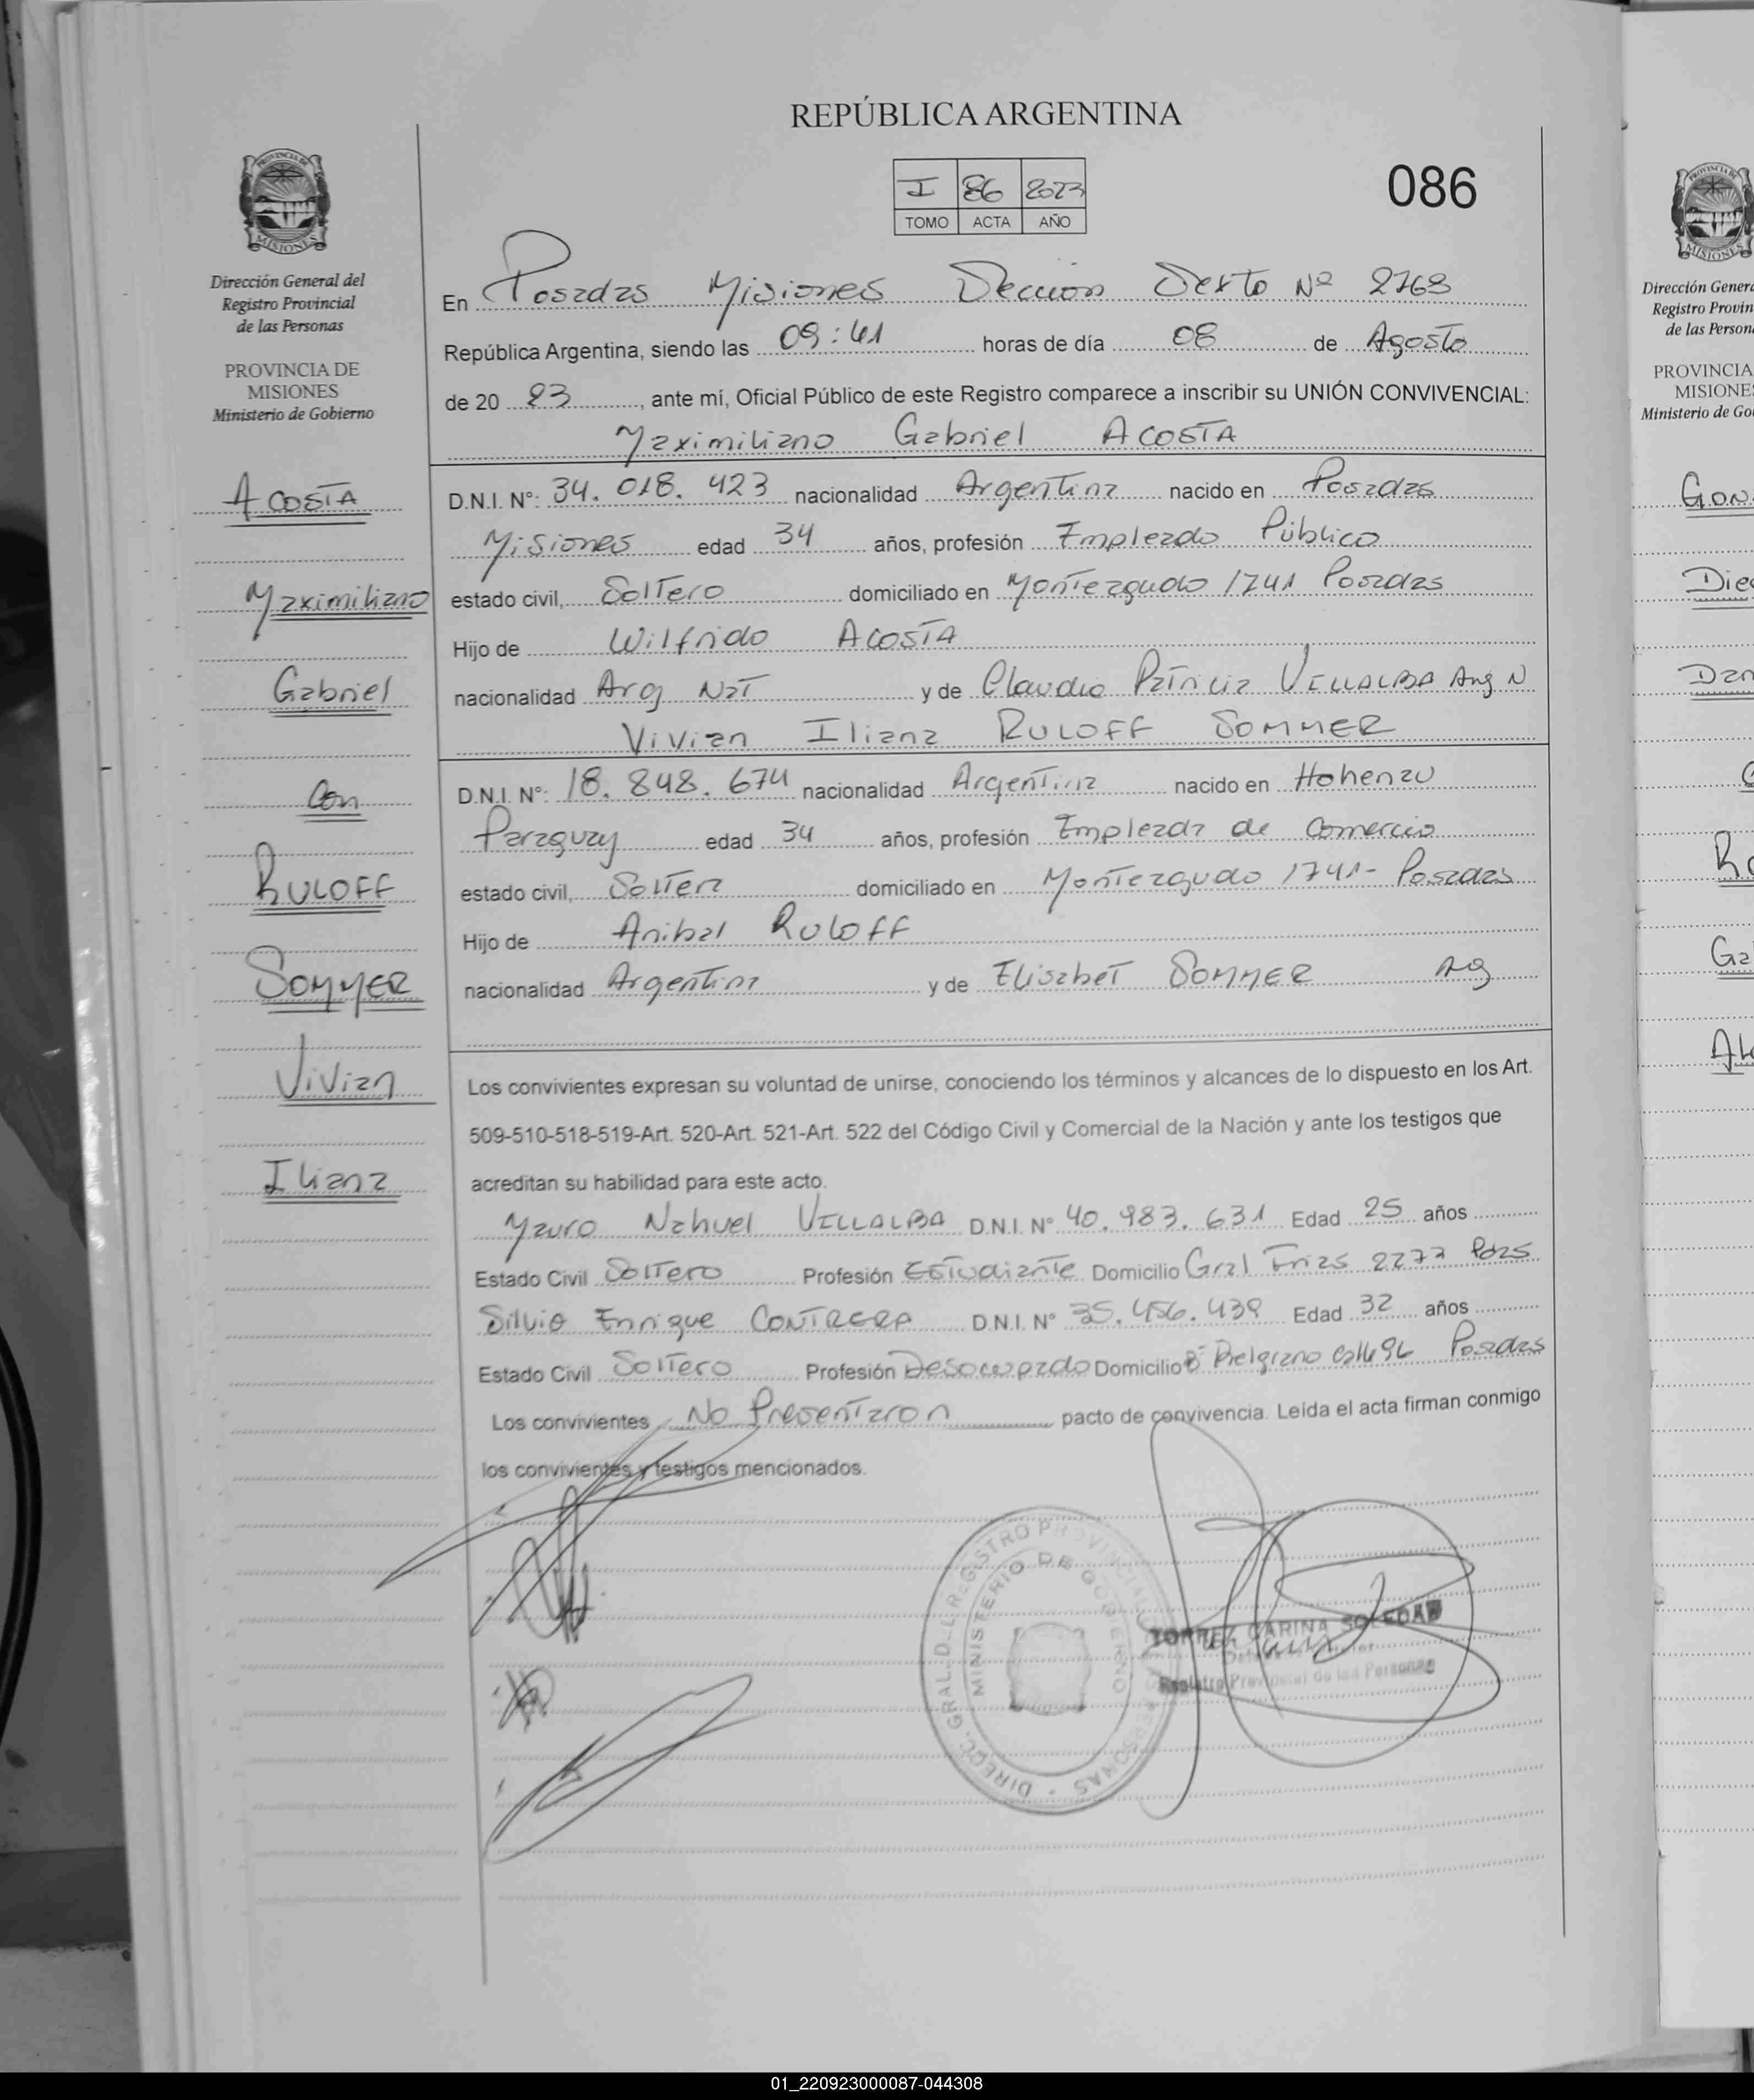 REPÚBLICA ARGENTINA
I 86 2023
TOMO ACTA AÑO
086
Dirección General del
Registro Provincial
de las Personas
PROVINCIA DE
MISIONES
Ministerio de Gobierno
ACOSTA
Maximiliano
Gabriel
Con
RULOFF
SOMMER
Vivian
Iliana
En Posadas Misiones Sección Sexto Nº 2768
República Argentina, siendo las 09:41 horas de día 08 de Agosto
de 20 23, ante mí, Oficial Público de este Registro comparece a inscribir su UNIÓN CONVIVENCIAL:
Maximiliano Gabriel ACOSTA
D.N.I. N°: 34. 018. 423 nacionalidad Argentina nacido en Posadas
Misiones edad 34 años, profesión Empleado Público
estado civil, Soltero domiciliado en Monteagudo 1741 Posadas
Hijo de Wilfrido ACOSTA
nacionalidad Arg Nat y de Claudia Patricia VILLALBA Arg N
Vivian Iliana RULOFF SOMMER
D.N.I. N°: 18. 848. 674 nacionalidad Argentina nacido en Hohenau
Paraguay edad 34 años, profesión Empleada de Comercio
estado civil, Soltera domiciliado en Monteagudo 1741- Posadas
Hijo de Anibal RULOFF
nacionalidad Argentina y de Elisabet SOMMER Ag
Los convivientes expresan su voluntad de unirse, conociendo los términos y alcances de lo dispuesto en los Art.
509-510-518-519-Art. 520-Art. 521-Art. 522 del Código Civil y Comercial de la Nación y ante los testigos que
acreditan su habilidad para este acto.
Mauro Nahuel VILLALBA D.N.I. N° 40. 983. 631 Edad 25 años
Estado Civil Soltero Profesión Estudiante Domicilio Gral Frias 2277 Pdas
Silvio Enrique CONTRERA D.N.I. N° 35. 456. 439 Edad 32 años
Estado Civil Soltero Profesión Desocupado Domicilio Bº Belgrano calle 96 Posadas
Los convivientes No Presentaron pacto de convivencia. Leída el acta firman conmigo
los convivientes y testigos mencionados.
DIRECC. GRAL. DEL REGISTRO PROVINCIAL DE LAS PERSONAS
MINISTERIO DE GOBIERNO
TORREZ CARINA SOLEDAD
Registro Provincial de las Personas
Dirección Genera
Registro Provin
de las Person
PROVINCIA
MISIONES
Ministerio de Go
01_220923000087-044308